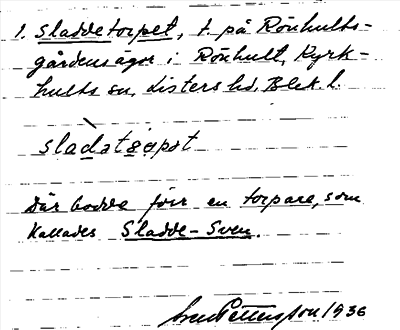 1. Sladdetorpet, t. på Rönhults-
gårdens ägor i Rönhult, Kyrk-
hults sn, Listers hd, Blek. l.
sladatɔpət
Där bodde förr en torpare, som
kallades Sladde-Sven.
Sven Pettersson 1936